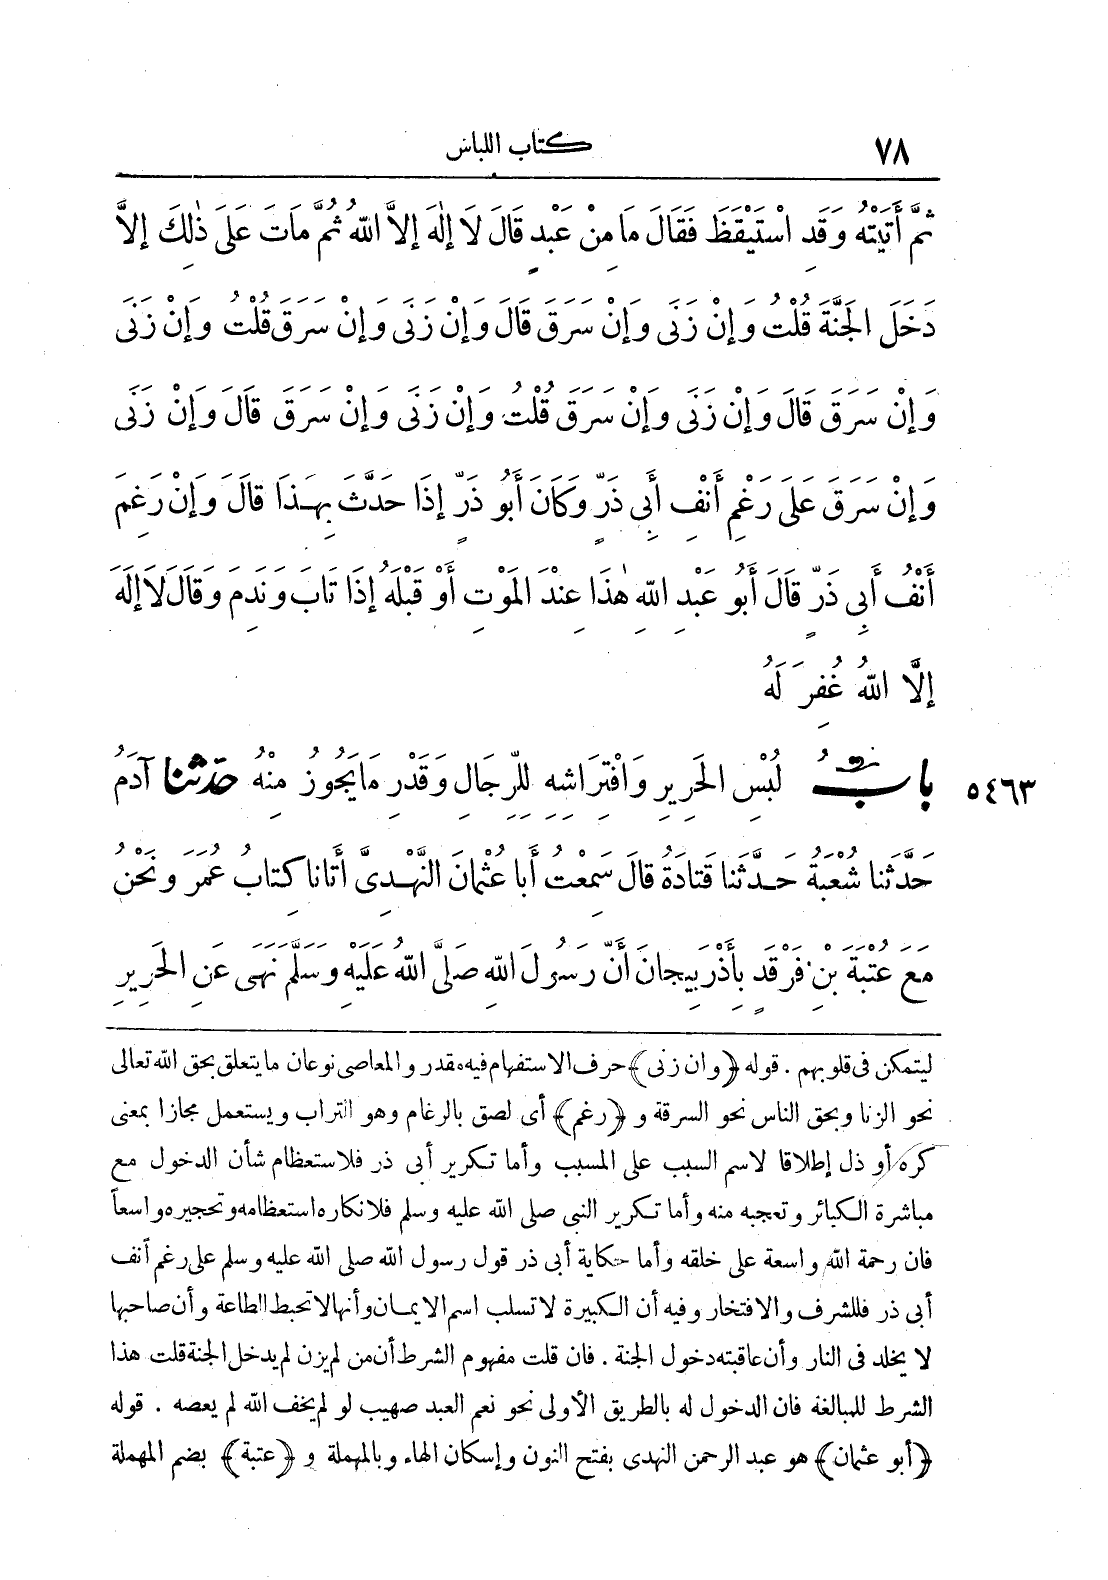 ٧٨ كتاب اللباس
ثُمَّ أَتَيْتُهُ وَقَدِ اسْتَيْقَظَ فَقَالَ مَا مِنْ عَبْدٍ قَالَ لَا إِلٰهَ إِلَّا اللهُ ثُمَّ مَاتَ عَلَى ذٰلِكَ إِلَّا
دَخَلَ الْجَنَّةَ قُلْتُ وَإِنْ زَنَى وَإِنْ سَرَقَ قَالَ وَإِنْ زَنَى وَإِنْ سَرَقَ قُلْتُ وَإِنْ زَنَى
وَإِنْ سَرَقَ قَالَ وَإِنْ زَنَى وَإِنْ سَرَقَ قُلْتُ وَإِنْ زَنَى وَإِنْ سَرَقَ قَالَ وَإِنْ زَنَى
وَإِنْ سَرَقَ عَلَى رَغْمِ أَنْفِ أَبِي ذَرٍّ وَكَانَ أَبُو ذَرٍّ إِذَا حَدَّثَ بِهَذَا قَالَ وَإِنْ رَغِمَ
أَنْفُ أَبِي ذَرٍّ قَالَ أَبُو عَبْدِ اللهِ هٰذَا عِنْدَ الْمَوْتِ أَوْ قَبْلَهُ إِذَا تَابَ وَنَدِمَ وَقَالَ لَا إِلَهَ
إِلَّا اللهُ غُفِرَ لَهُ
بابُ لُبْسِ الْحَرِيرِ وَافْتِرَاشِهِ لِلرِّجَالِ وَقَدْرِ مَا يَجُوزُ مِنْهُ حدّثنا آدَمُ ٥٤٦٣
حَدَّثَنَا شُعْبَةُ حَدَّثَنَا قَتَادَةُ قَالَ سَمِعْتُ أَبَا عُثْمَانَ النَّهْدِىَّ أَتَانَا كِتَابُ عُمَرَ وَنَحْنُ
مَعَ عُتْبَةَ بْنِ فَرْقَدٍ بِأَذْرَبِيجَانَ أَنَّ رَسُولَ اللهِ صَلَّى اللهُ عَلَيْهِ وَسَلَّمَ نَهَى عَنِ الْحَرِيرِ
ليتمكن فى قلوبهم . قوله ﴿وان زنى﴾ حرف الاستفهام فيه مقدر والمعاصى نوعان ما يتعلق بحق الله تعالى
نحو الزنا وبحق الناس نحو السرقة و ﴿رغم﴾ أى لصق بالرغام وهو التراب ويستعمل مجازا بمعنى
كره أو ذل إطلاقا لاسم السبب على المسبب وأما تكرير أبى ذر فلاستعظام شأن الدخول مع
مباشرة الكبائر وتعجبه منه وأما تكرير النبى صلى الله عليه وسلم فلانكاره استعظامه وتحجيره واسعاً
فان رحمة الله واسعة على خلقه وأما حكاية أبى ذر قول رسول الله صلى الله عليه وسلم على رغم أنف
أبى ذر فللشرف والافتخار وفيه أن الكبيرة لا تسلب اسم الايمان وأنها لا تحبط الطاعة وأن صاحبها
لا يخلد فى النار وأن عاقبته دخول الجنة . فان قلت مفهوم الشرط أن من لم يزن لم يدخل الجنة قلت هذا
الشرط للمبالغه فان الدخول له بالطريق الأولى نحو نعم العبد صهيب لو لم يخف الله لم يعصه . قوله
﴿أبو عثمان﴾ هو عبد الرحمن النهدى بفتح النون وإسكان الهاء وبالمهملة و ﴿عتبة﴾ بضم المهملة